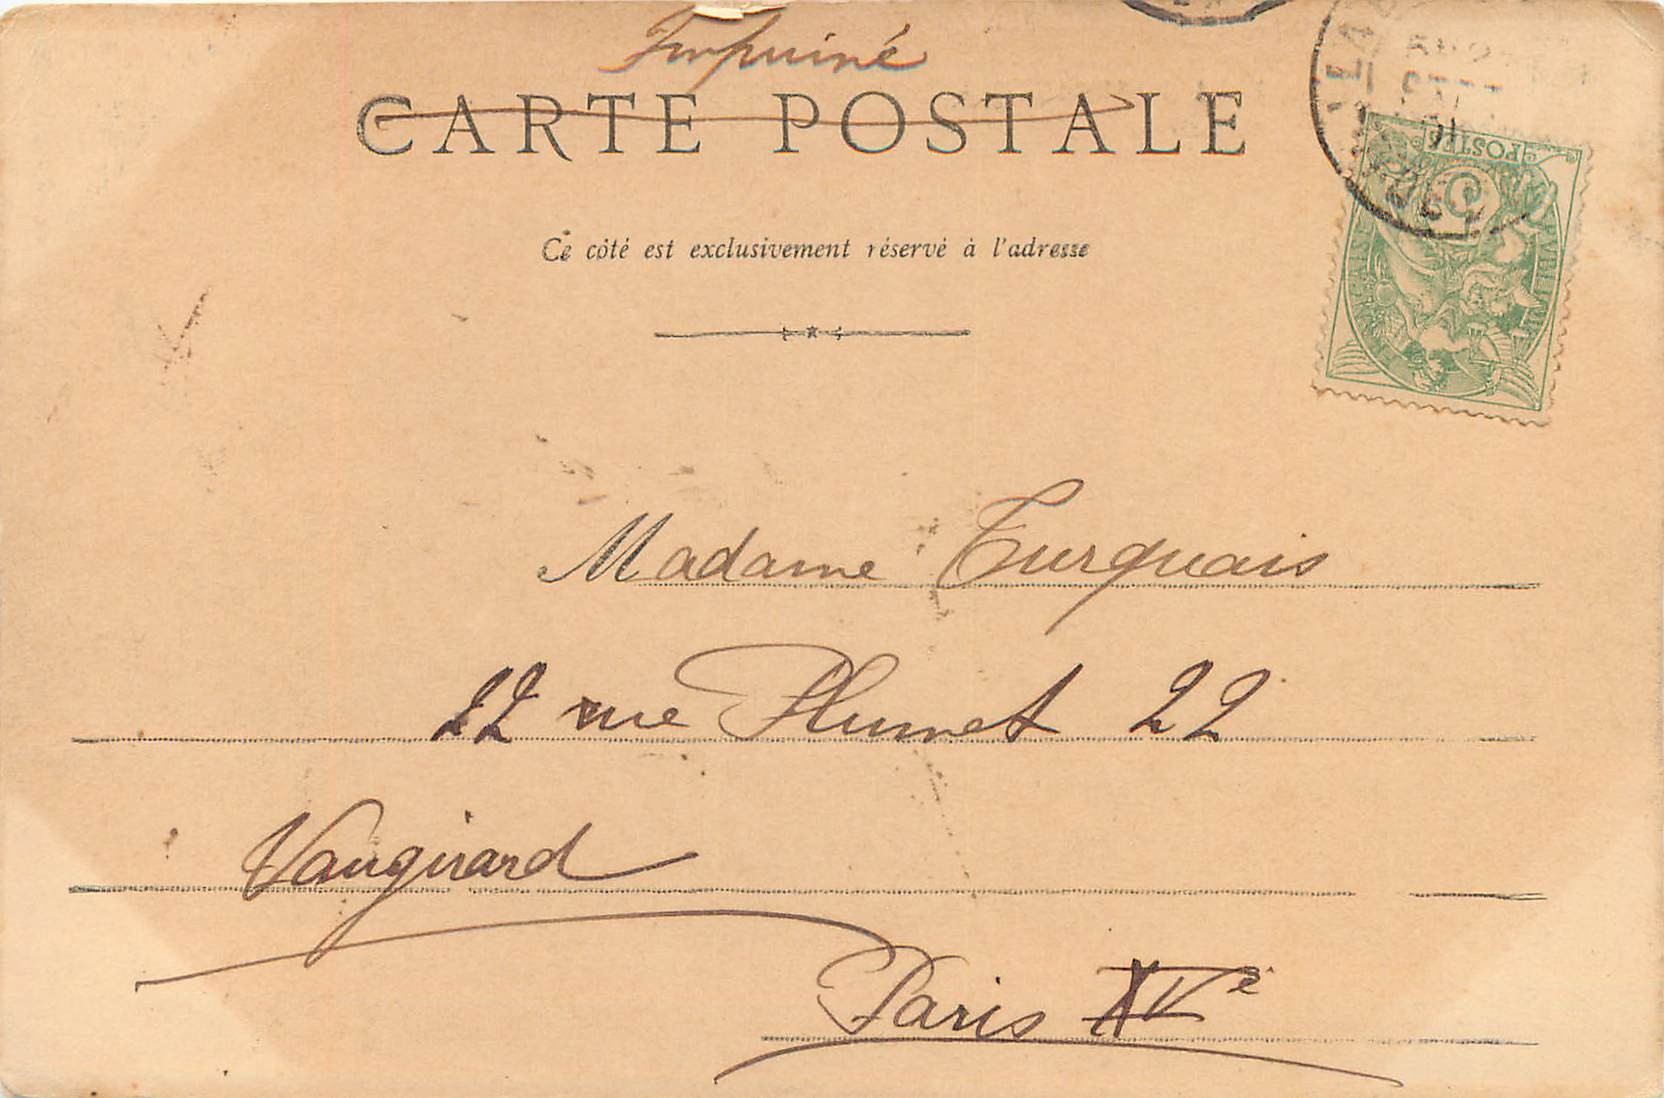 Imprimé
CARTE POSTALE
Ce côté est exclusivement réservé à l'adresse
POSTES
5
Madame Turquais
22 rue Plumet 22
Vaugirard
Paris XVe